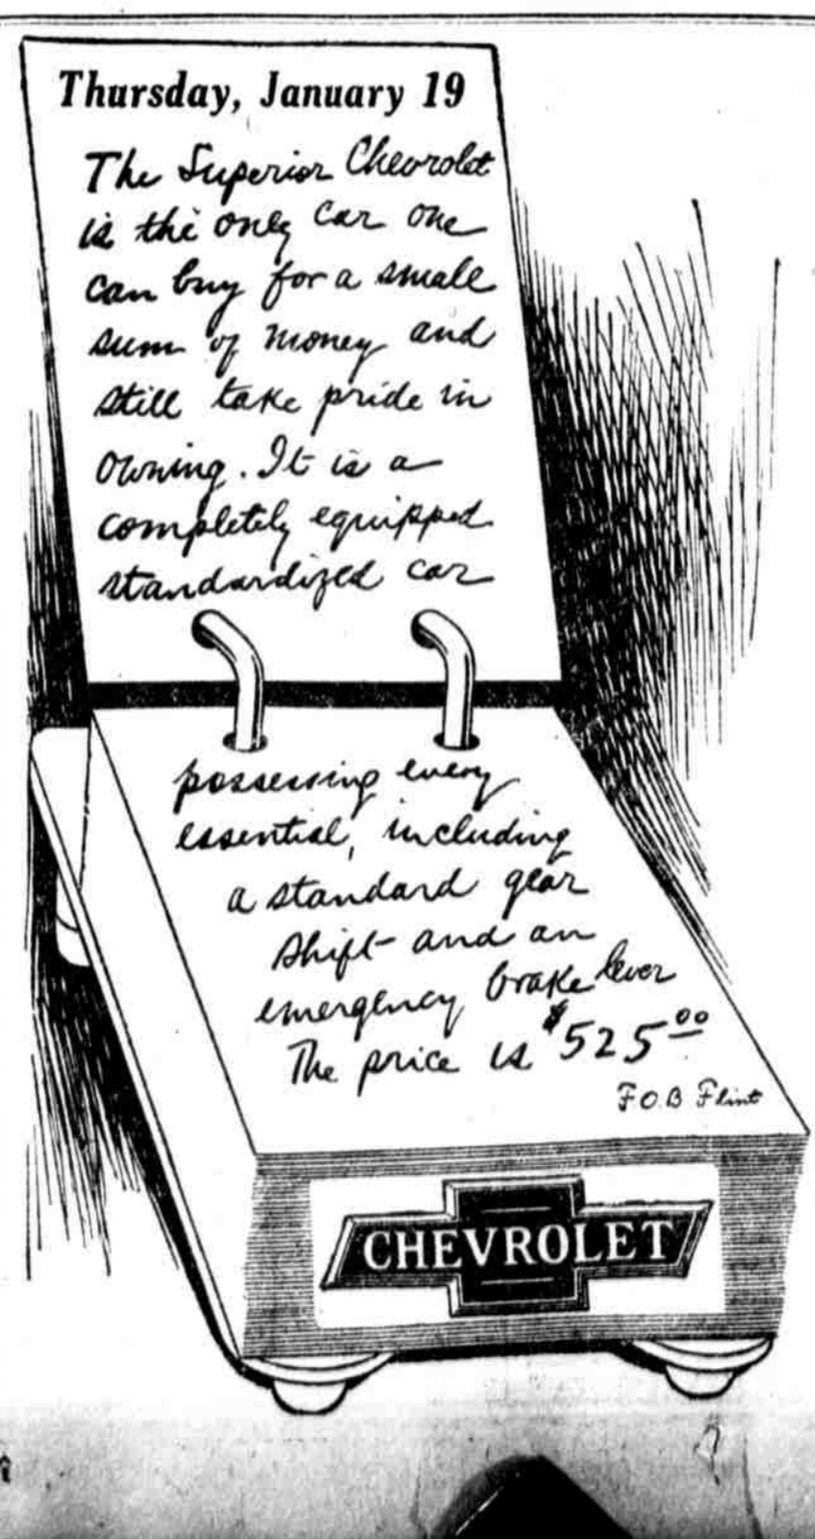 Thursday, January 19
The Superior Chevrolet
is the only car one
can buy for a small
sum of money and
still take pride in
owning. It is a
completely equipped
standardized car
possessing every
essential, including
a standard gear
shift and an
emergency brake lever
The price is $525.00
F.O.B Flint
CHEVROLET